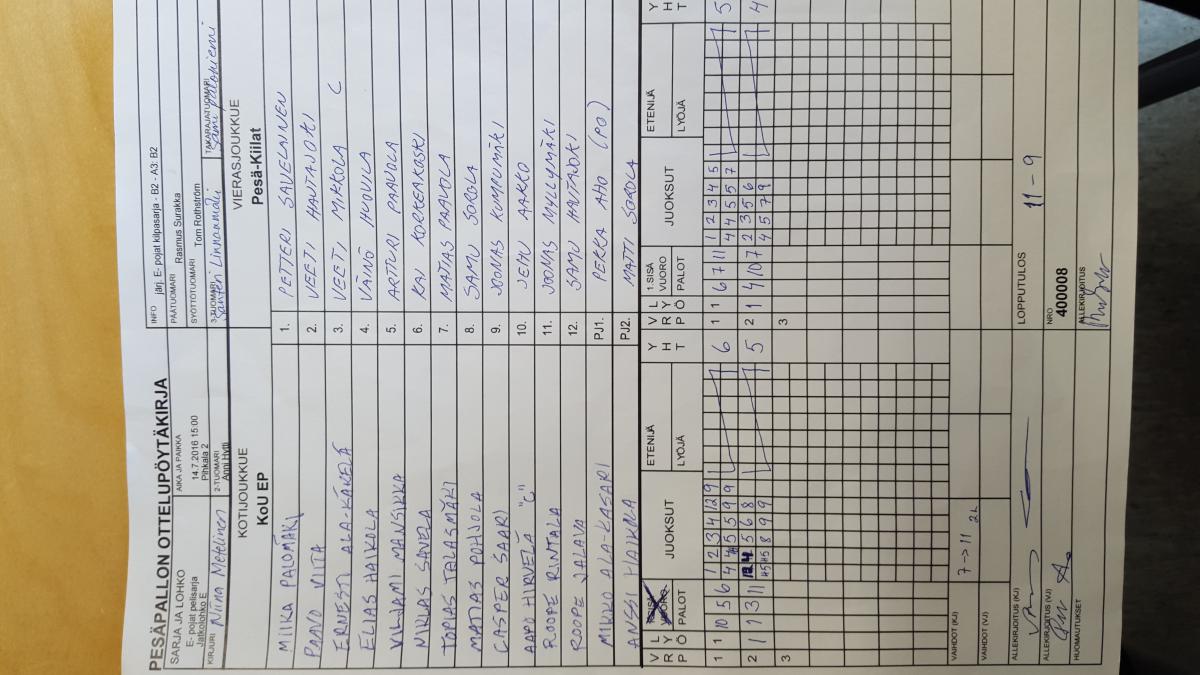 PESÄPALLON OTTELUPÖYTÄKIRJA
INFO järj. E- pojat kilpasarja - B2 - A3: B2
SARJA JA LOHKO
E- pojat pelisarja
Jatkolohko E
AIKA JA PAIKKA
14.7.2016 15:00
Pihkala 2
PÄÄTUOMARI Rasmus Surakka
SYÖTTÖTUOMARI Tom Rothström
KIRJURI Niina Metelinen
2-TUOMARI
Anni Hytti
3-TUOMARI
Santeri Linnanmäki
TAKARAJATUOMARI
Sami Palohiemi
KOTIJOUKKUE
KoU EP
VIERASJOUKKUE
Pesä-Kiilat
MIIKA PALOMÄKI 1. PETTERI SAVELAINEN
PAAVO VIITA 2. VEETI HAUTAJOKI
ERNESTI ALA-KÄKELÄ 3. VEETI MIKKOLA C
ELIAS HAIKOLA 4. VÄINÖ HUOVILA
VILJAMI MANSIKKA 5. ARTTURI PAAVOLA
NIKLAS SAVELA 6. KAI KORKEAKOSKI
TOPIAS TALASMÄKI 7. MATIAS PAAVOLA
MATIAS POHJOLA 8. SAMU SOROLA
CASPER SAARI 9. JOONAS KUMPUMÄKI
AAPO HIRVELÄ "C" 10. JEMU AAKKO
ROOPE RINTALA 11. JOONAS MYLLYMÄKI
ROOPE JALAVA 12. SAMU HAUTAJOKI
MIKKO ALA-KASARI PJ1. PEKKA AHO (PO)
ANSSI HAIKOLA PJ2. MATTI SOROLA
VRP LYÖ PALOT JUOKSUT ETENIJÄ LYÖJÄ YHT
VRP LYÖ 1.SISÄ VUORO PALOT JUOKSUT ETENIJÄ LYÖJÄ YHT
1 1 10 5 6 1 2 3 4 12 9 6
1 1 6 7 11 1 2 3 4 5 5
4 4 5 5 7
2 1 7 3 11 5
5 6 8
8 9 9
2 1 4 10 7 2 3 5 6 4
4 5 7 9
3
3
VAIHDOT (KJ) 7 -> 11 2L
VAIHDOT (VJ)
LOPPUTULOS 11 - 9
ALLEKIRJOITUS (KJ)
ALLEKIRJOITUS (VJ)
NRO
400008
HUOMAUTUKSET
ALLEKIRJOITUS